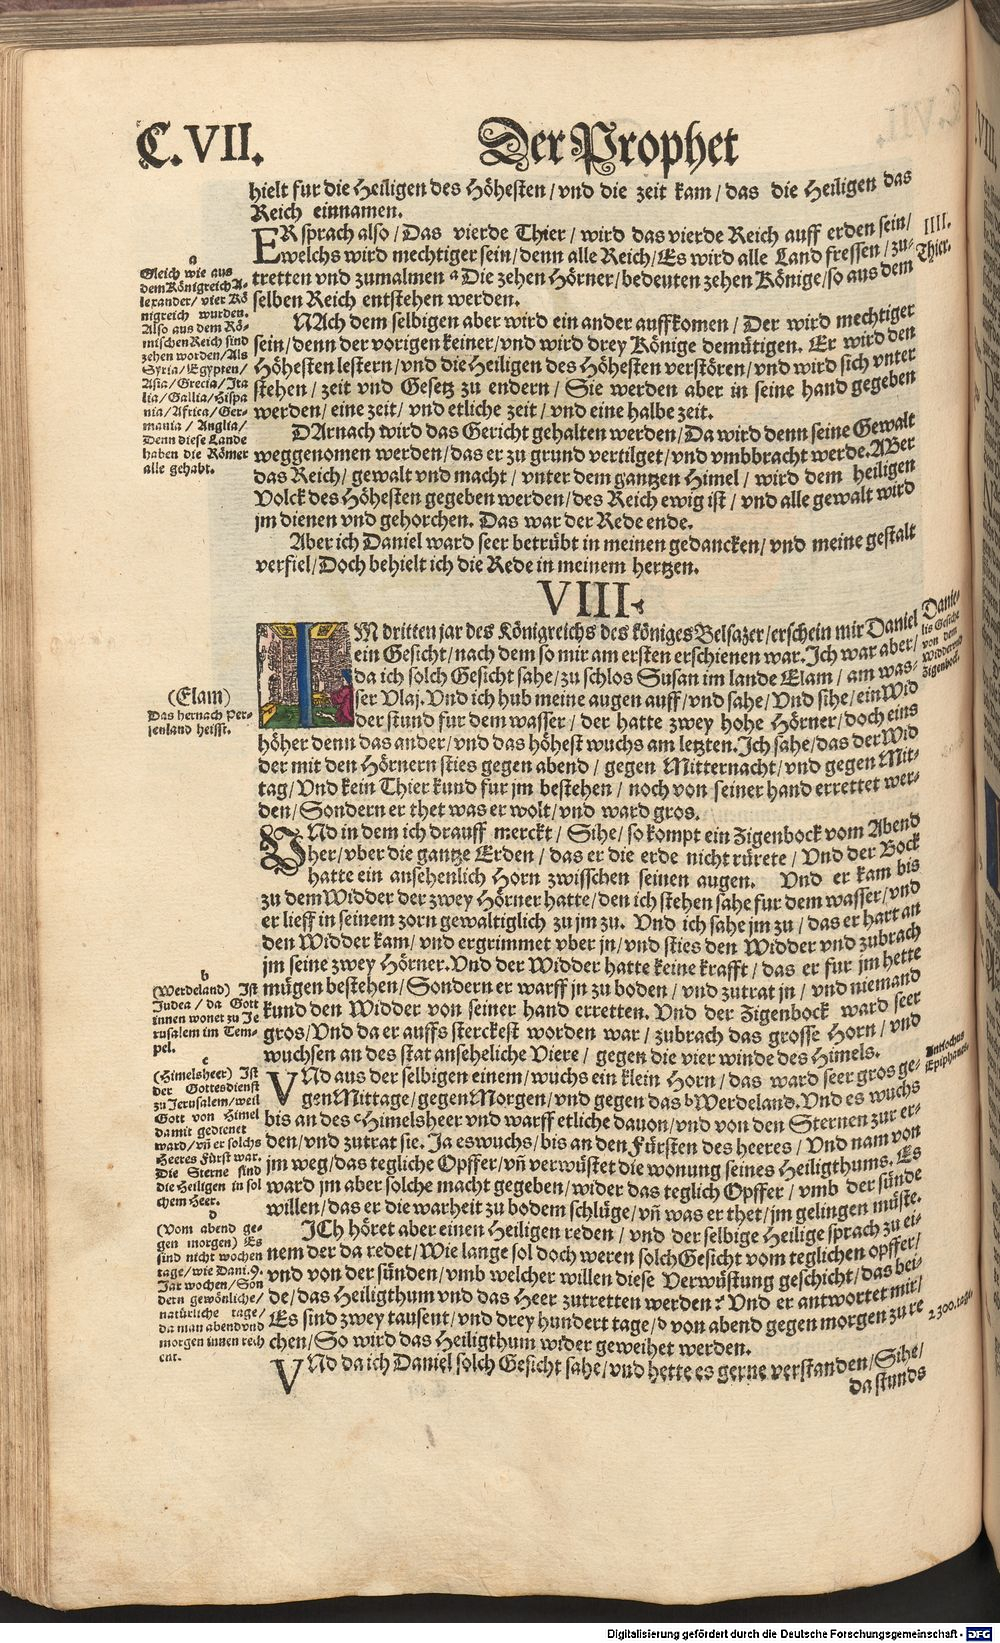 C.VII.
Der Prophet
hielt fur die Heiligen des Höhesten/ vnd die zeit kam/ das die Heiligen das
Reich einnamen.
ER sprach also/ Das vierde Thier/ wird das vierde Reich auff erden sein/
welchs wird mechtiger sein/ denn alle Reich/ Es wird alle Land fressen/ zu-
tretten vnd zumalmen a Die zehen Hörner/ bedeuten zehen Könige/ so aus dem
selben Reich entstehen werden.
NAch dem selbigen aber wird ein ander auffkomen/ Der wird mechtiger
sein/ denn der vorigen keiner/ vnd wird drey Könige demütigen. Er wird den
Höhesten lestern/ vnd die Heiligen des Höhesten verstören/ vnd wird sich vnter
stehen/ zeit vnd Gesetz zu endern/ Sie werden aber in seine hand gegeben
werden/ eine zeit/ vnd etliche zeit/ vnd eine halbe zeit.
DArnach wird das Gericht gehalten werden/ Da wird denn seine Gewalt
weggenomen werden/ das er zu grund vertilget/ vnd vmbbracht werde. ABer
das Reich/ gewalt vnd macht/ vnter dem gantzen Himel/ wird dem heiligen
Volck des Höhesten gegeben werden/ des Reich ewig ist/ vnd alle gewalt wird
jm dienen vnd gehorchen. Das war der Rede ende.
Aber ich Daniel ward seer betrübt in meinen gedancken/ vnd meine gestalt
verfiel/ Doch behielt ich die Rede in meinem hertzen.
IIII.
Thier.
a
Gleich wie aus
dem Königreich A-
lexander/ vier Kö
nigreich wurden.
Also aus dem Rö-
mischen Reich sind
zehen worden/ Als
Syria/ Egypten/
Asia/ Grecia/ Ita
lia/ Gallia/ Hispa
nia/ Africa/ Ger-
mania/ Anglia/
Denn diese Lande
haben die Römer
alle gehabt.
VIII.
IM dritten jar des Königreichs des königes Belsazer/ erschein mir Daniel
ein Gesicht/ nach dem so mir am ersten erschienen war. Ich war aber/
da ich solch Gesicht sahe/ zu schlos Susan im lande Elam/ am was-
ser Vlaj. Vnd ich hub meine augen auff/ vnd sahe/ Vnd sihe/ ein Wid
der stund fur dem wasser/ der hatte zwey hohe Hörner/ doch eins
höher denn das ander/ vnd das höhest wuchs am letzten. Ich sahe/ das der Wid
der mit den Hörnern sties gegen abend/ gegen Mitternacht/ vnd gegen Mit-
tag/ Vnd kein Thier kund fur jm bestehen/ noch von seiner hand errettet wer-
den/ Sondern er thet was er wolt/ vnd ward gros.
Danie-
lis Gesicht
von dem
Widder vnd
Zigenbock.
(Elam)
Das hernach Per-
senland heisst.
VNd in dem ich drauff merckt/ Sihe/ so kompt ein Zigenbock vom Abend
her/ vber die gantze Erden/ das er die erde nicht rürete/ Vnd der Bock
hatte ein ansehenlich Horn zwisschen seinen augen. Vnd er kam bis
zu dem Widder der zwey Hörner hatte/ den ich stehen sahe fur dem wasser/ vnd
er lieff in seinem zorn gewaltiglich zu jm zu. Vnd ich sahe jm zu/ das er hart an
den Widder kam/ vnd ergrimmet vber jn/ vnd sties den Widder vnd zubrach
jm seine zwey Hörner. Vnd der Widder hatte keine krafft/ das er fur jm hette
mügen bestehen/ Sondern er warff jn zu boden/ vnd zutrat jn/ vnd niemand
kund den Widder von seiner hand erretten. Vnd der Zigenbock ward seer
gros/ Vnd da er auffs sterckest worden war/ zubrach das grosse Horn/ vnd
wuchsen an des stat anseheliche Viere/ gegen die vier winde des Himels.
VNd aus der selbigen einem/ wuchs ein klein Horn/ das ward seer gros ge-
gen Mittage/ gegen Morgen/ vnd gegen das b Werdeland. Vnd es wuchs
bis an des c Himelsheer vnd warff etliche dauon/ vnd von den Sternen zur er-
den/ vnd zutrat sie. Ja es wuchs/ bis an den Fürsten des heeres/ Vnd nam von
jm weg/ das tegliche Opffer/ vñ verwüstet die wonung seines Heiligthums. Es
ward jm aber solche macht gegeben/ wider das teglich Opffer/ vmb der sünde
willen/ das er die warheit zu bodem schlüge/ vñ was er thet/ jm gelingen müste.
ICh höret aber einen Heiligen reden/ vnd der selbige Heilige sprach zu ei-
nem der da redet/ Wie lange sol doch weren solch Gesicht vom teglichen opffer/
vnd von der sünden/ vmb welcher willen diese Verwüstung geschicht/ das bei-
de/ das Heiligthum vnd das Heer zutretten werden? Vnd er antwortet mir/
Es sind zwey tausent/ vnd drey hundert tage/ d von abend gegen morgen zu re
chen/ So wird das Heiligthum wider geweihet werden.
VNd da ich Daniel solch Gesicht sahe/ vnd hette es gerne verstanden/ Sihe/
da stunds
b
(Werdeland) Ist
Judea/ da Gott
innen wonet zu Je
rusalem im Tem-
pel.
c
(Himelsheer) Ist
der Gottesdienst
zu Jerusalem/ weil
Gott von Himel
damit gedienet
ward/ vñ er solchs
Heeres Fürst war.
Die Sterne sind
die Heiligen in sol
chem Heer.
d
(Vom abend ge-
gen morgen) Es
sind nicht wochen
tage/ wie Dani.9.
Jar wochen/ Son
dern gewönliche/
natürliche tage/
da man abend vnd
morgen innen rech
ent.
Antiochus
Epiphanes.
2300. tage
Digitalisierung gefördert durch die Deutsche Forschungsgemeinschaft - DFG